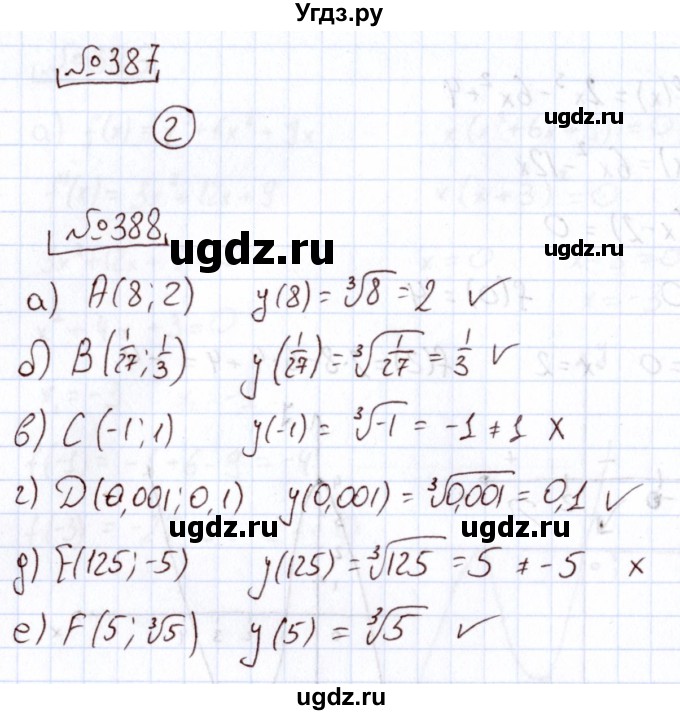 Угдз.ру
№387
ugdz.ru
2
№388
ugdz.ru
ugdz.ru
а) A(8; 2) y(8) = ∛8 = 2 ✓
б) B(1/27; 1/3) y(1/27) = ∛(1/27) = 1/3 ✓
в) C(-1; 1) y(-1) = ∛-1 = -1 ≠ 1 x
г) D(0,001; 0,1) y(0,001) = ∛0,001 = 0,1 ✓
ugdz.ru
ugdz.ru
д) E(125; -5) y(125) = ∛125 = 5 ≠ -5 x
е) F(5; ∛5) y(5) = ∛5 ✓
ugdz.ru
ugdz.ru